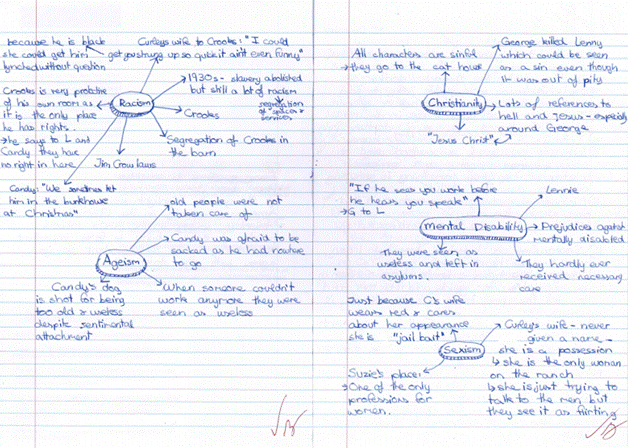 because he is black
she could get him
lynched without question
Curleys wife to Crooks: "I could
get you strung up so quick it aint even funny"
Crooks is very protective
of his own room as
it is the only place
he has rights.
→ he says to L and
Candy they have
no right in here
Racism
1930s - slavery abolished
but still a lot of racism
segregation
of spaces &
services
Crooks
Segregation of Crooks in
the barn
Jim Crow laws
Candy: "We sometimes let
him in the bunkhouse
at Christmas"
old people were not
taken care of
Candy was afraid to be
sacked as he had nowhere
to go
Ageism
Candy's dog
is shot for being
too old & useless
despite sentimental
attachment
When someone couldn't
work anymore they were
seen as useless
All characters are sinful
→ they go to the cat house
George killed Lenny
which could be seen
as a sin even though
it was out of pity
Christianity
Lots of references to
hell and Jesus - especially
around George
"Jesus Christ"
"If he sees you work before
he hears you speak"
→ G to L
Lennie
Mental Disability
Prejudices against
mentally disabled
They were seen as
useless and left in
asylums.
They hardly ever
received necessary
care
Just because C's wife
wears red & cares
about her appearance
she is "jail bait"
Sexism
Curley's wife - never
given a name -
she is a possession
↳ she is the only woman
on the ranch
↳ she is just trying to
talk to the men but
they see it as flirting
Suzie's place:
→ One of the only
professions for
women.